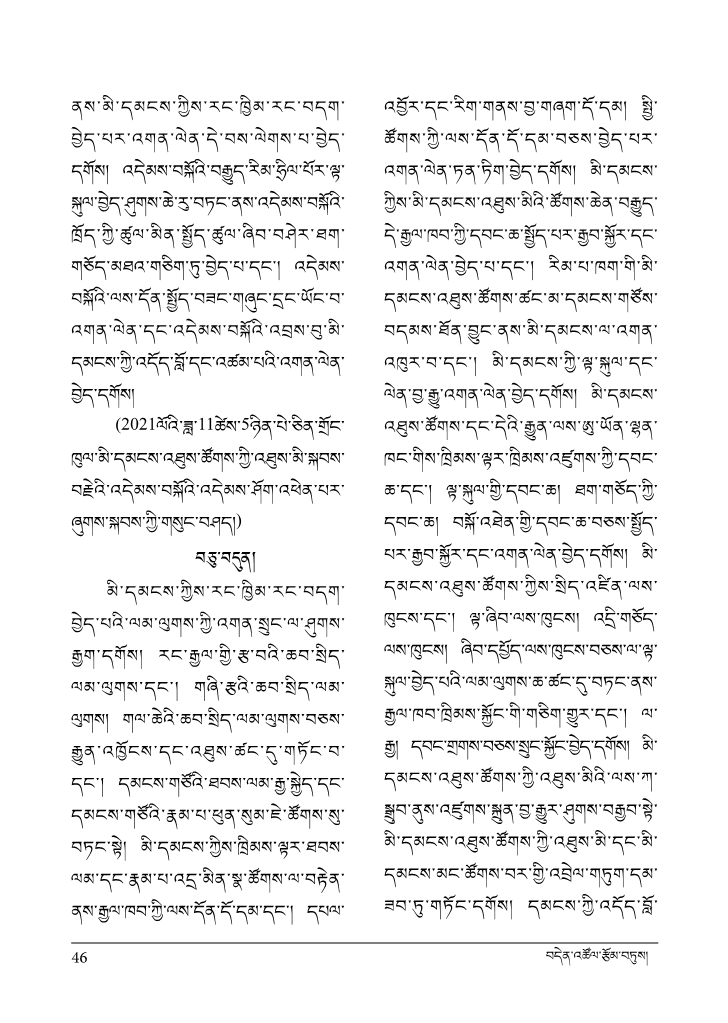 ནས་མི་དམངས་ཀྱིས་རང་ཁྱིམ་རང་བདག་
བྱེད་པར་འགན་ལེན་དེ་བས་ལེགས་པ་བྱེད་
དགོས། འདེམས་བསྐོའི་བརྒྱུད་རིམ་ཧྲིལ་པོར་ལྟ་
སྐུལ་བྱེད་ཤུགས་ཆེ་རུ་བཏང་ནས་འདེམས་བསྐོའི་
ཁྲོད་ཀྱི་ཚུལ་མིན་སྤྱོད་ཚུལ་ཞིབ་བཤེར་ཐག་
གཅོད་མཐའ་གཅིག་ཏུ་བྱེད་པ་དང་། འདེམས་
བསྐོའི་ལས་དོན་སྤྱོད་བཟང་གཞུང་དྲང་ཡོང་བ་
འགན་ལེན་དང་འདེམས་བསྐོའི་འབྲས་བུ་མི་
དམངས་ཀྱི་འདོད་བློ་དང་འཚམ་པའི་འགན་ལེན་
བྱེད་དགོས།
(2021ལོའི་ཟླ་11ཚེས་5ཉིན་པེ་ཅིན་གྲོང་
ཁུལ་མི་དམངས་འཐུས་ཚོགས་ཀྱི་འཐུས་མི་སྐབས་
བརྗེའི་འདེམས་བསྐོའི་འདེམས་ཤོག་འཕེན་པར་
ཞུགས་སྐབས་ཀྱི་གསུང་བཤད།)
བཅུ་བདུན།
མི་དམངས་ཀྱིས་རང་ཁྱིམ་རང་བདག་
བྱེད་པའི་ལམ་ལུགས་ཀྱི་འགན་སྲུང་ལ་ཤུགས་
རྒྱག་དགོས། རང་རྒྱལ་གྱི་རྩ་བའི་ཆབ་སྲིད་
ལམ་ལུགས་དང་། གཞི་རྩའི་ཆབ་སྲིད་ལམ་
ལུགས། གལ་ཆེའི་ཆབ་སྲིད་ལམ་ལུགས་བཅས་
རྒྱུན་འཁྱོངས་དང་འཐུས་ཚང་དུ་གཏོང་བ་
དང་། དམངས་གཙོའི་ཐབས་ལམ་རྒྱ་སྐྱེད་དང་
དམངས་གཙོའི་རྣམ་པ་ཕུན་སུམ་ཇེ་ཚོགས་སུ་
བཏང་སྟེ། མི་དམངས་ཀྱིས་ཁྲིམས་ལྟར་ཐབས་
ལམ་དང་རྣམ་པ་འདྲ་མིན་སྣ་ཚོགས་ལ་བརྟེན་
ནས་རྒྱལ་ཁབ་ཀྱི་ལས་དོན་དོ་དམ་དང་། དཔལ་
འབྱོར་དང་རིག་གནས་བྱ་གཞག་དོ་དམ། སྤྱི་
ཚོགས་ཀྱི་ལས་དོན་དོ་དམ་བཅས་བྱེད་པར་
འགན་ལེན་ཏན་ཏིག་བྱེད་དགོས། མི་དམངས་
ཀྱིས་མི་དམངས་འཐུས་མིའི་ཚོགས་ཆེན་བརྒྱུད་
དེ་རྒྱལ་ཁབ་ཀྱི་དབང་ཆ་སྤྱོད་པར་རྒྱབ་སྐྱོར་དང་
འགན་ལེན་བྱེད་པ་དང་། རིམ་པ་ཁག་གི་མི་
དམངས་འཐུས་ཚོགས་ཚང་མ་དམངས་གཙོས་
བདམས་ཐོན་བྱུང་ནས་མི་དམངས་ལ་འགན་
འཁུར་བ་དང་། མི་དམངས་ཀྱི་ལྟ་སྐུལ་དང་
ལེན་བྱ་རྒྱུ་འགན་ལེན་བྱེད་དགོས། མི་དམངས་
འཐུས་ཚོགས་དང་དེའི་རྒྱུན་ལས་ཨུ་ཡོན་ལྷན་
ཁང་གིས་ཁྲིམས་ལྟར་ཁྲིམས་འཛུགས་ཀྱི་དབང་
ཆ་དང་། ལྟ་སྐུལ་གྱི་དབང་ཆ། ཐག་གཅོད་ཀྱི་
དབང་ཆ། བསྐོ་འཐེན་གྱི་དབང་ཆ་བཅས་སྤྱོད་
པར་རྒྱབ་སྐྱོར་དང་འགན་ལེན་བྱེད་དགོས། མི་
དམངས་འཐུས་ཚོགས་ཀྱིས་སྲིད་འཛིན་ལས་
ཁུངས་དང་། ལྟ་ཞིབ་ལས་ཁུངས། འདྲི་གཅོད་
ལས་ཁུངས། ཞིབ་དཔྱོད་ལས་ཁུངས་བཅས་ལ་ལྟ་
སྐུལ་བྱེད་པའི་ལམ་ལུགས་ཆ་ཚང་དུ་བཏང་ནས་
རྒྱལ་ཁབ་ཁྲིམས་སྐྱོང་གི་གཅིག་གྱུར་དང་། ལ་
རྒྱ། དབང་གྲགས་བཅས་སྲུང་སྐྱོང་བྱེད་དགོས། མི་
དམངས་འཐུས་ཚོགས་ཀྱི་འཐུས་མིའི་ལས་ཀ་
སྒྲུབ་ནུས་འཛུགས་སྐྲུན་བྱ་རྒྱུར་ཤུགས་བརྒྱབ་སྟེ་
མི་དམངས་འཐུས་ཚོགས་ཀྱི་འཐུས་མི་དང་མི་
དམངས་མང་ཚོགས་བར་གྱི་འབྲེལ་གཏུག་དམ་
ཟབ་ཏུ་གཏོང་དགོས། དམངས་ཀྱི་འདོད་བློ་
46
བདེན་འཚོལ་རྩོམ་བཏུས།